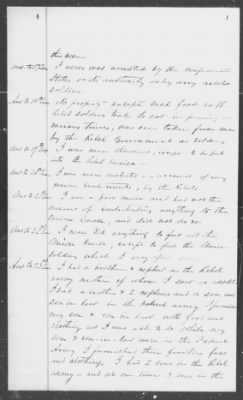 the war.
Ans. to 17th I never was arrested by the confederate
State or its authority or by any rebel
soldiers
Ans to 18th No property except such food as the
rebel soldiers took to eat in passing at
various times, was ever taken from me
by the Rebel Government or soldiers
Ans to 19th I was never threatened, except to be put
into the Rebel service.
Ans to 20th I was never molested on account of my
Union sentiments, by the Rebels.
Ans to 21st I am a poor man and had not the
means of contributing anything to the
Union Cause, and did not do so.
Ans to 22d I never did anything to aid the
Union Cause, except to feed the Union
soldiers which I very often
Ans to 23d I had a brother & nephew in the Rebel
army neither of whom I saw or assisted
I had a brother & 2 nephews and a son and
son in law in the Federal army. I furnished
my son & son in law with food and
clothing as I was able to do. While my
son & son-in-law were in the Federal
Army I furnished their families food
and clothing. I had 2 sons in the Rebel
army - and at one time 2 sons in the